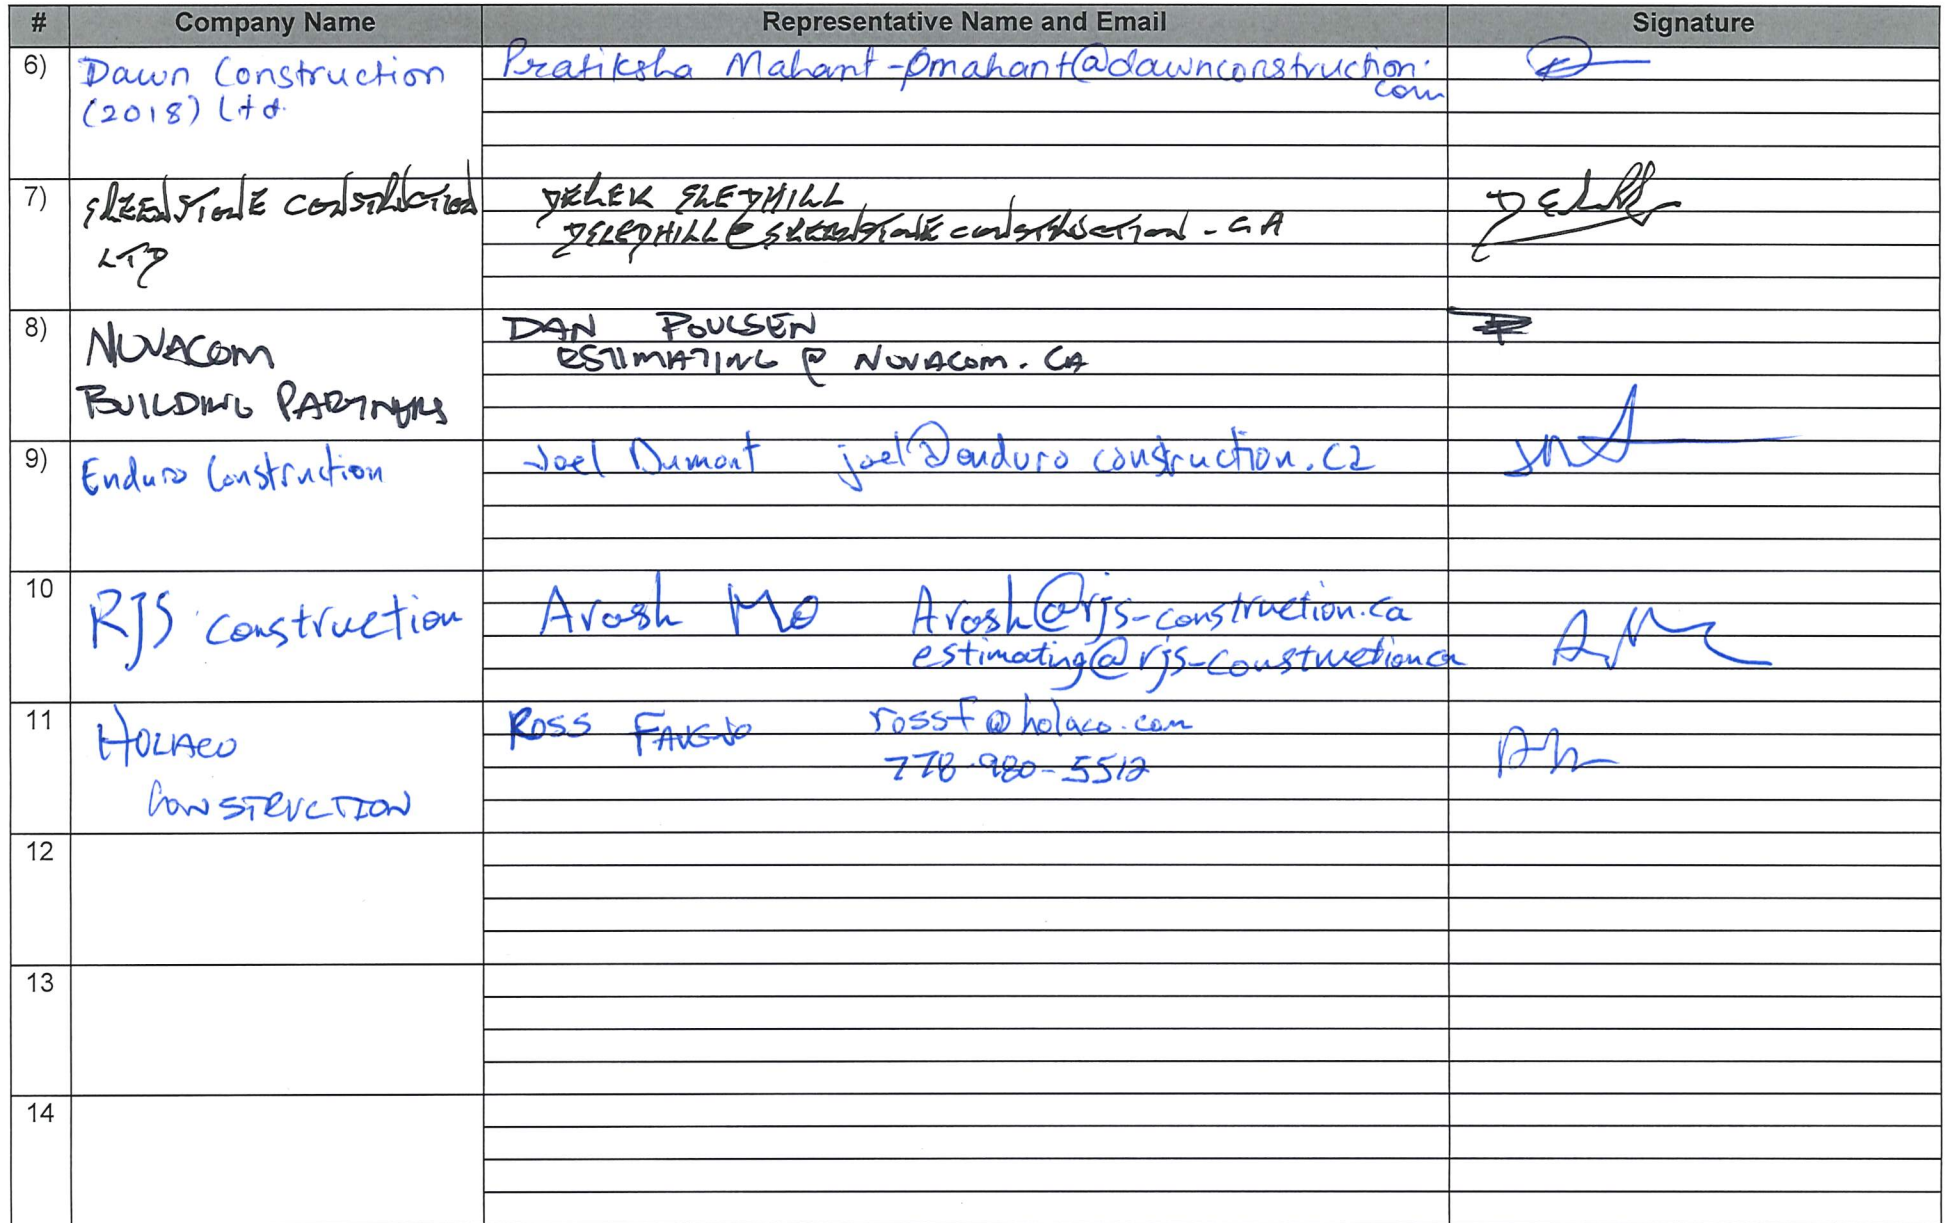 # Company Name Representative Name and Email Signature
6) Dawn Construction (2018) Ltd.
Pratiksha Mahant - pmahant@dawnconstruction.
com
7) GREENSTONE CONSTRUCTION
LTD
DEREK GLEDHILL
DGLEDHILL@GREENSTONECONSTRUCTION.CA
8) NOVACOM
BUILDING PARTNERS
DAN POULSEN
ESTIMATING@NOVACOM.CA
9) Enduro Construction
Joel Dumont joel@enduroconstruction.ca
10 RJS construction
Arash Mo Arash@rjs-construction.ca
estimating@rjs-construction.ca
11 HOLACO
CONSTRUCTION
ROSS rossf@holaco.com
778-980-5512
12
13
14